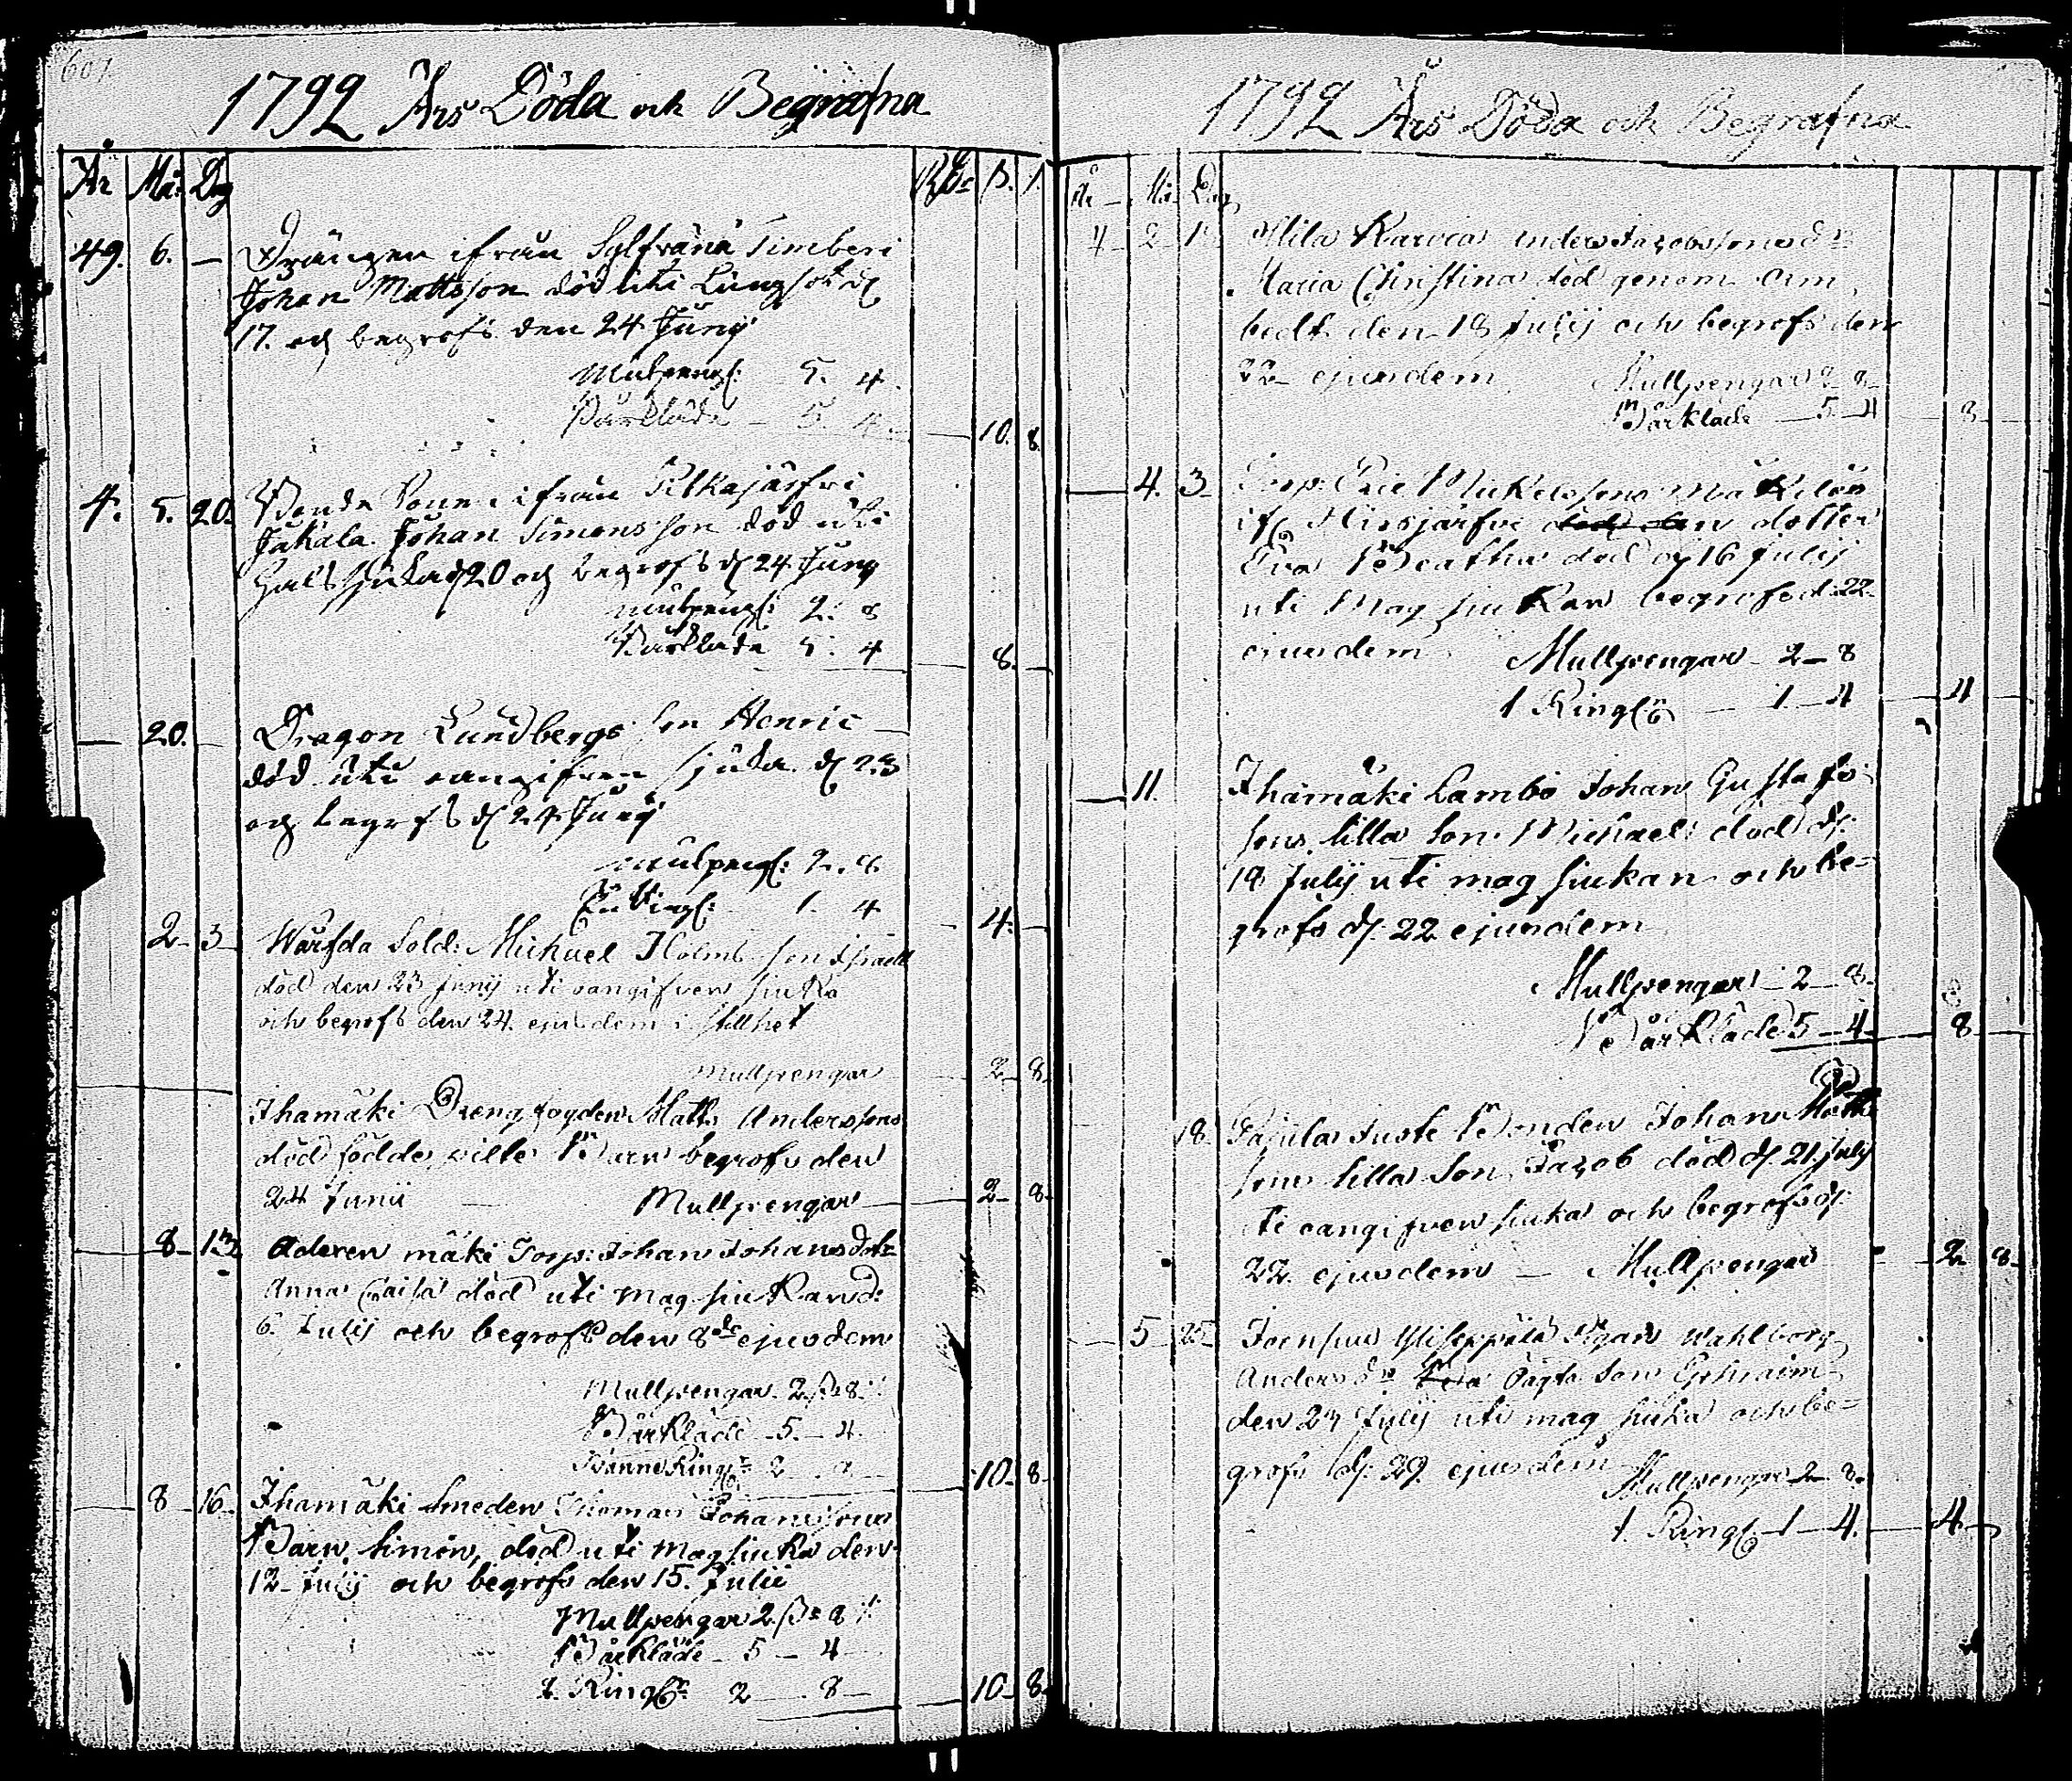 607
1792 Års Döda och Begrafna
År Må: Dag Rdr ß. r.
49. 6. — Drängen ifrån Timberi
Johan Mattsson död uti Lungsot d
17. och begrofs den 24 Junij
Mulpeng: 5. 4.
Bårkläde — 5. 4. — 10. 8.
4. 5. 20. Bonde Sone ifrån Pilkajärfvi
Jakala Johan Simonsson död uti
Halssjuka d 20 och begrofs d 24 Juny
Mulpeng: 2. 8
Bårkläde 5. 4 — 8. —
— 20. — Dragon Lundbergs Son Henric
död uti oangifven sjuka d 23
och begrofs d 24 Junij
Mulpeng: 2. 8.
En Ring: 1. 4 — 4. —
2 — 3 — Wärfda Sold: Michael Holmb. son Israel
död den 23 Junij uti oangifven siuka
och begrofs den 24. ejusdem i Stillhet
Mullpengar — 2 — 8
Ihamäki Drengfogden Matts Anderssons
död födde pille Barn begrofs den
24 Junii — Mullpengar — 2 — 8 —
8 — 13 mäki Torp: Johan Johans dotr
Anna Caisa död uti mag siukan d:
6. Julij och begrofs den 8de ejusdem
Mullpengar. 2 ß 8
Bårkläde — 5. — 4.
2 — 8 — 10 — 8 —
8 — 16 — Ihamäki Smeden Thomas Johanssons
Barn, Simon, död uti mag siuka den
12 Julij och begrofs den 15. Julii
Mullpengar 2. ß 8
Bårkläde — 5 — 4 —
2. Ring: 2 — 8 — 10 — 8 —
1792 Års Döda och Begrafna
År — Må — Dag
4 — 2 — Karvia Anders Jacobssons dr
Maria Christina död genom Åm
bedt den 18 Julij och begrofs den
22 ejusdem Mullpengar 2 — 8 —
Bårkläde — 5 — 4 — 8 —
— 4. 3 — Torp: Eric Mickelssons
ifr Hirsjärfvi dotter
Eva Beatha död d 16 Julij
uti Mag siukan begrofs d. 22
ejusdem Mullpengar — 2 — 8
1 Ring — 1 — 4 — 4 —
— 11. Ihamäki Lambo Johan Gustafs
sons lilla son Michael död d:
18 Julij uti mag siukan och be=
grofs d: 22 ejusdem
Mullpengar — 2 — 8 —
Bårkläde 5 — 4 — 8 —
18 — Bonden Johan Matts
sons lilla Son Jacob död d. 21 Julij
uti oangifven siuka och begrofs d:
22. ejusdem — Mullpengar — 2 — 8 —
— 5 — 25 — Joensuu Wahlborg
Anders dr oägta Son Ephraim
den 23 Julij uti mag siuka och be=
grofs d: 29 ejusdem
Mullpengar 2 — 8 —
1. Ring — 1 — 4. — 4 —